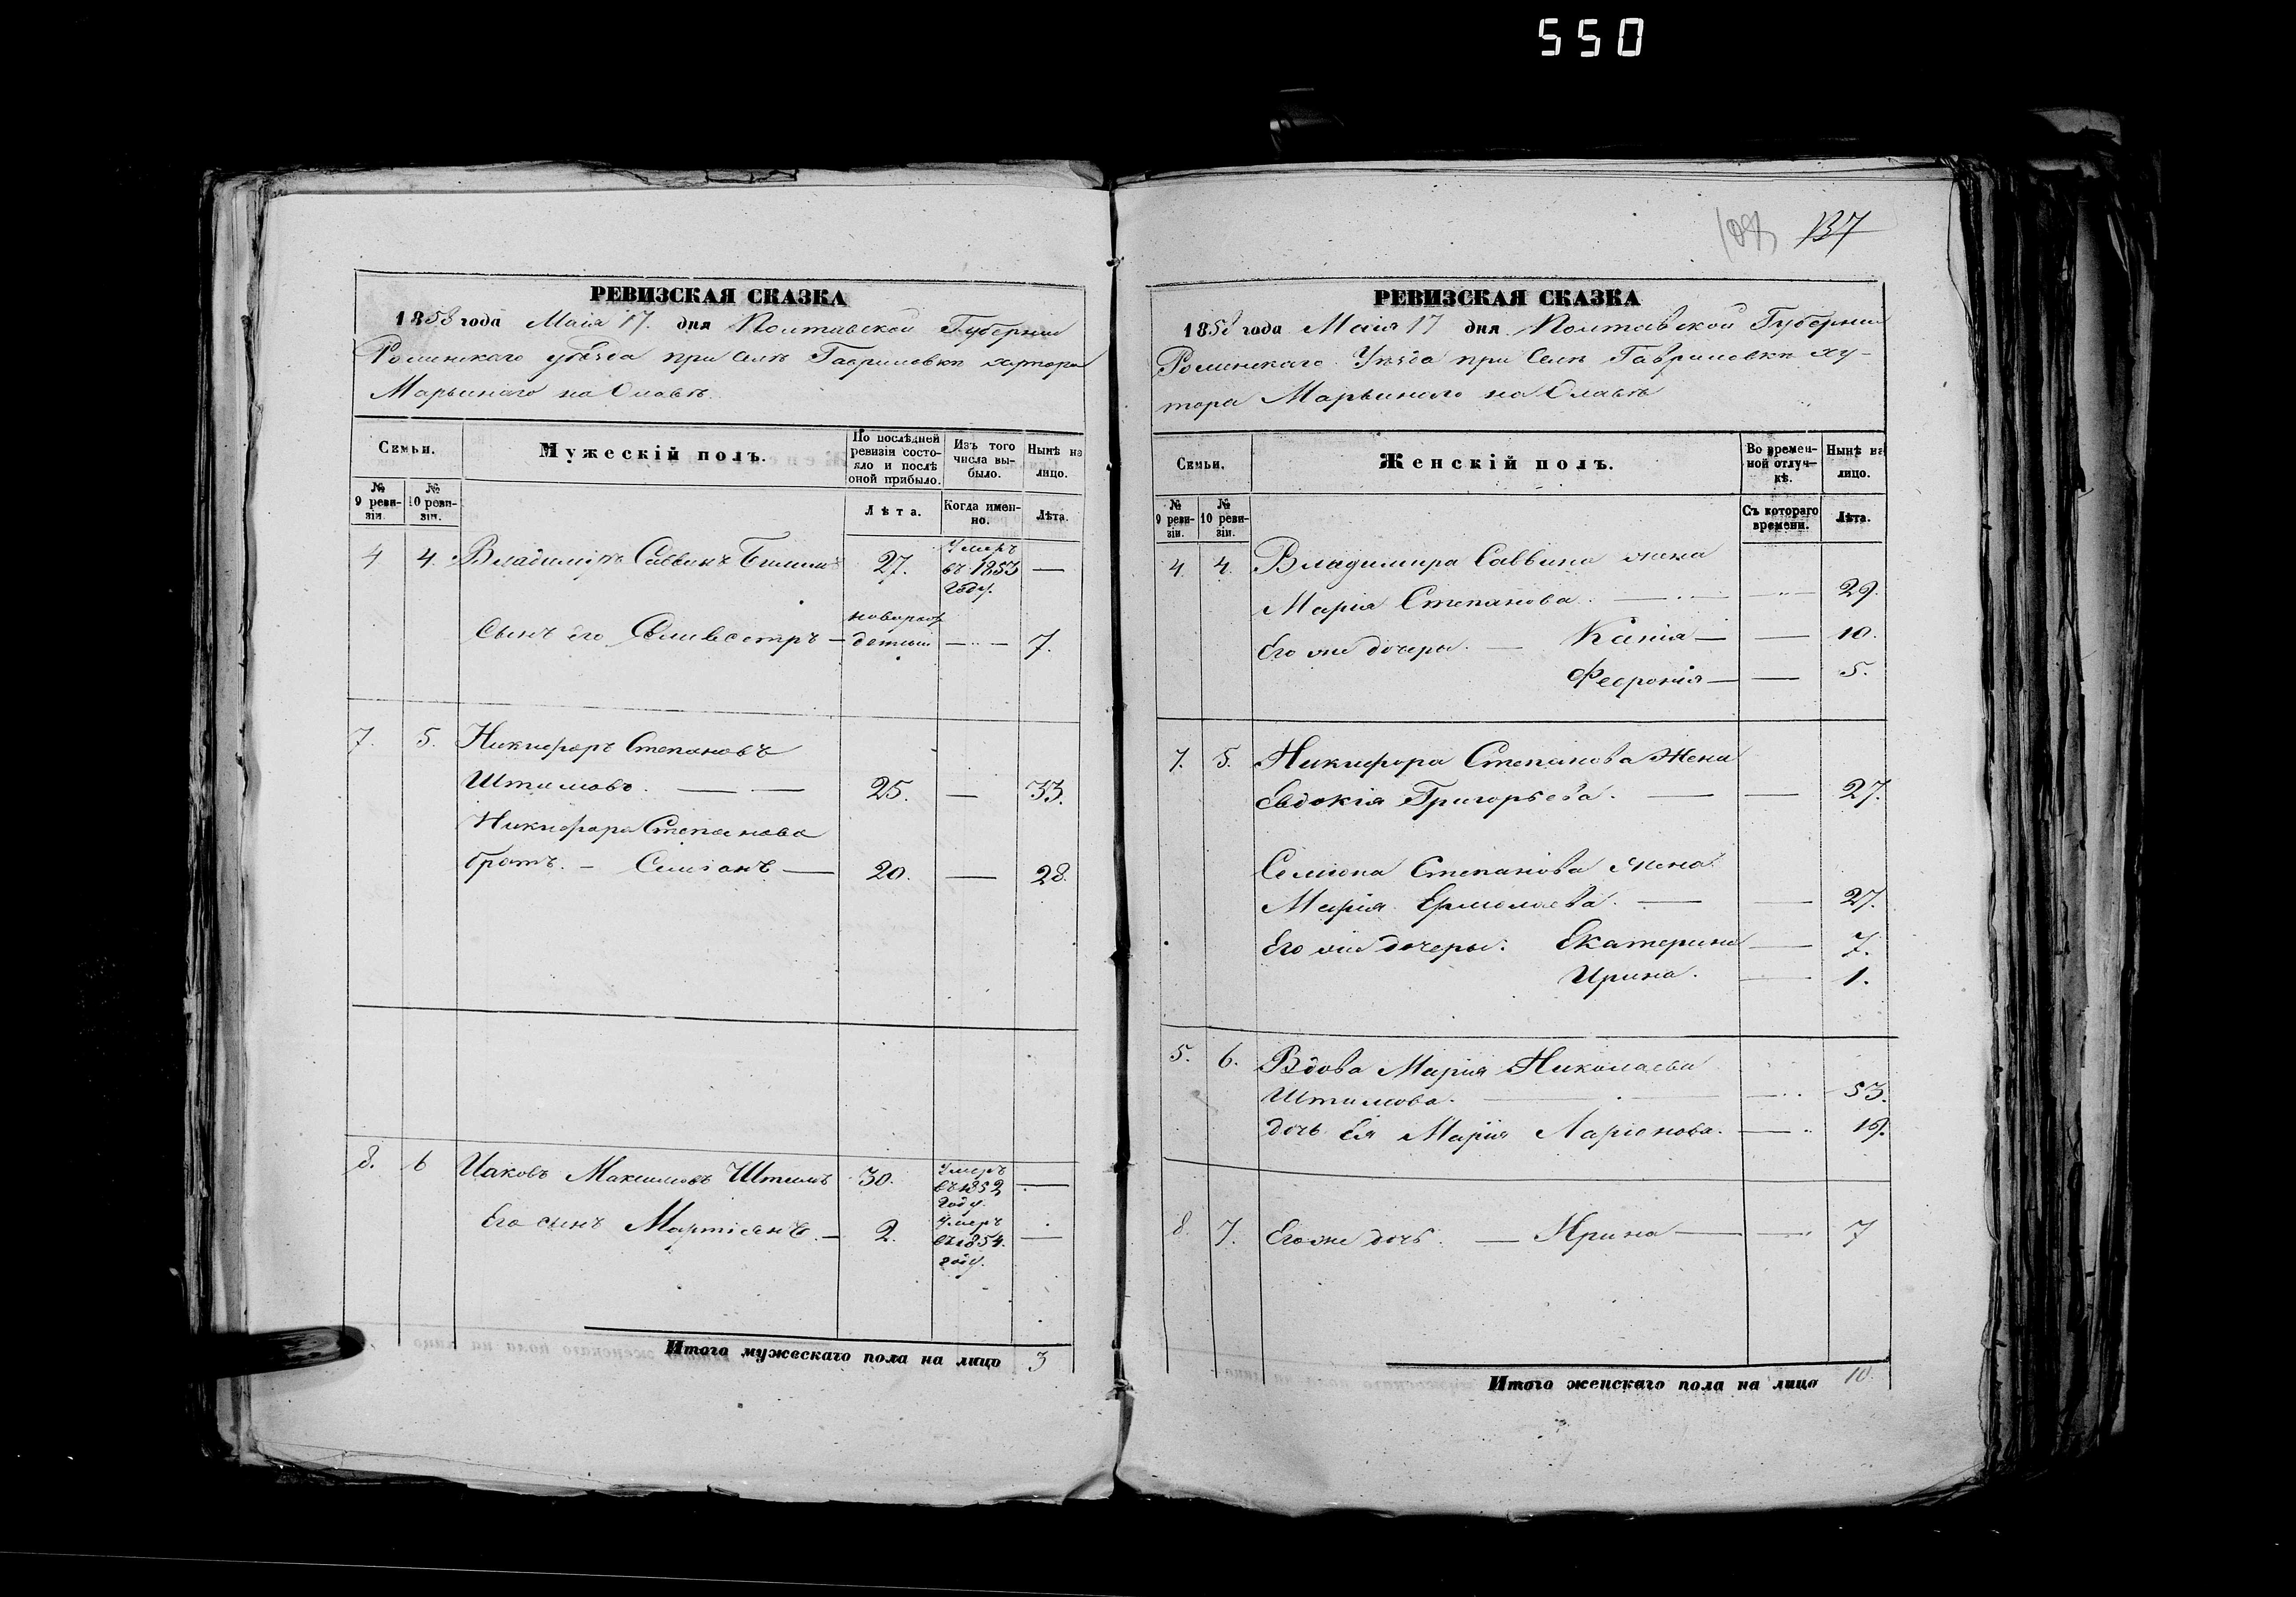 550
108 137
РЕВИЗСКАЯ СКАЗКА
1858 года Маія 17. дня Полтавской Губерніи
Роменскаго уѣзда при Селѣ Гавриловки хутора
Марьинаго на Олавѣ.
Семьи.
Мужескій полъ.
По послѣдней ревизіи состояло и послѣ оной прибыло.
Изъ того числа выбыло.
Нынѣ на лицо.
№ 9 ревизіи.
№ 10 ревизіи.
Лѣта.
Когда именно.
Лѣта.
4 4. Владиміръ Саввинъ 27. Умеръ въ 1853 году. —
Сынъ его Селивестръ — новорожденный — 7.
7. 5. Никифоръ Степановъ
Штымовъ. — — 25. — 33.
Никифора Степанова
братъ. — Семіонъ — 20. — 28.
8. 6 Иаковъ Максимовъ Штымъ 30. Умеръ въ 1852 году. —
Его сынъ Мартіанъ. — 2. Умеръ въ 1854. году. —
Итого мужескаго пола на лицо 3
РЕВИЗСКАЯ СКАЗКА
1858 года Маія 17 дня Полтавской Губерніи
Роменскаго Уѣзда при Селѣ Гавриловки ху-
тора Марьинаго на Олавѣ
Семьи.
Женскій полъ.
Во временной отлучкѣ.
Нынѣ на лицо.
№ 9 ревизіи.
№ 10 ревизіи.
Съ котораго времени.
Лѣта.
4. 4. Владимира Саввина жена
Марія Степанова. — — 29.
Его же дочеры. — — — 10.
Феоронія — — 5.
7. 5. Никифора Степанова Жена
Евдокія Григорьева. — — 27.
Семіона Степанова жена
Марія Ермолаева. — — 27.
Его же дочеры: Екатерина — 7.
Ирина. — 1.
5. 6. Вдова Марія Николаева
Штымова. — — 53.
дочь Ея Марія Ларіонова. — 19.
8. 7. Его же дочь. — Ирина — — 7
Итого женскаго пола на лицо 10.